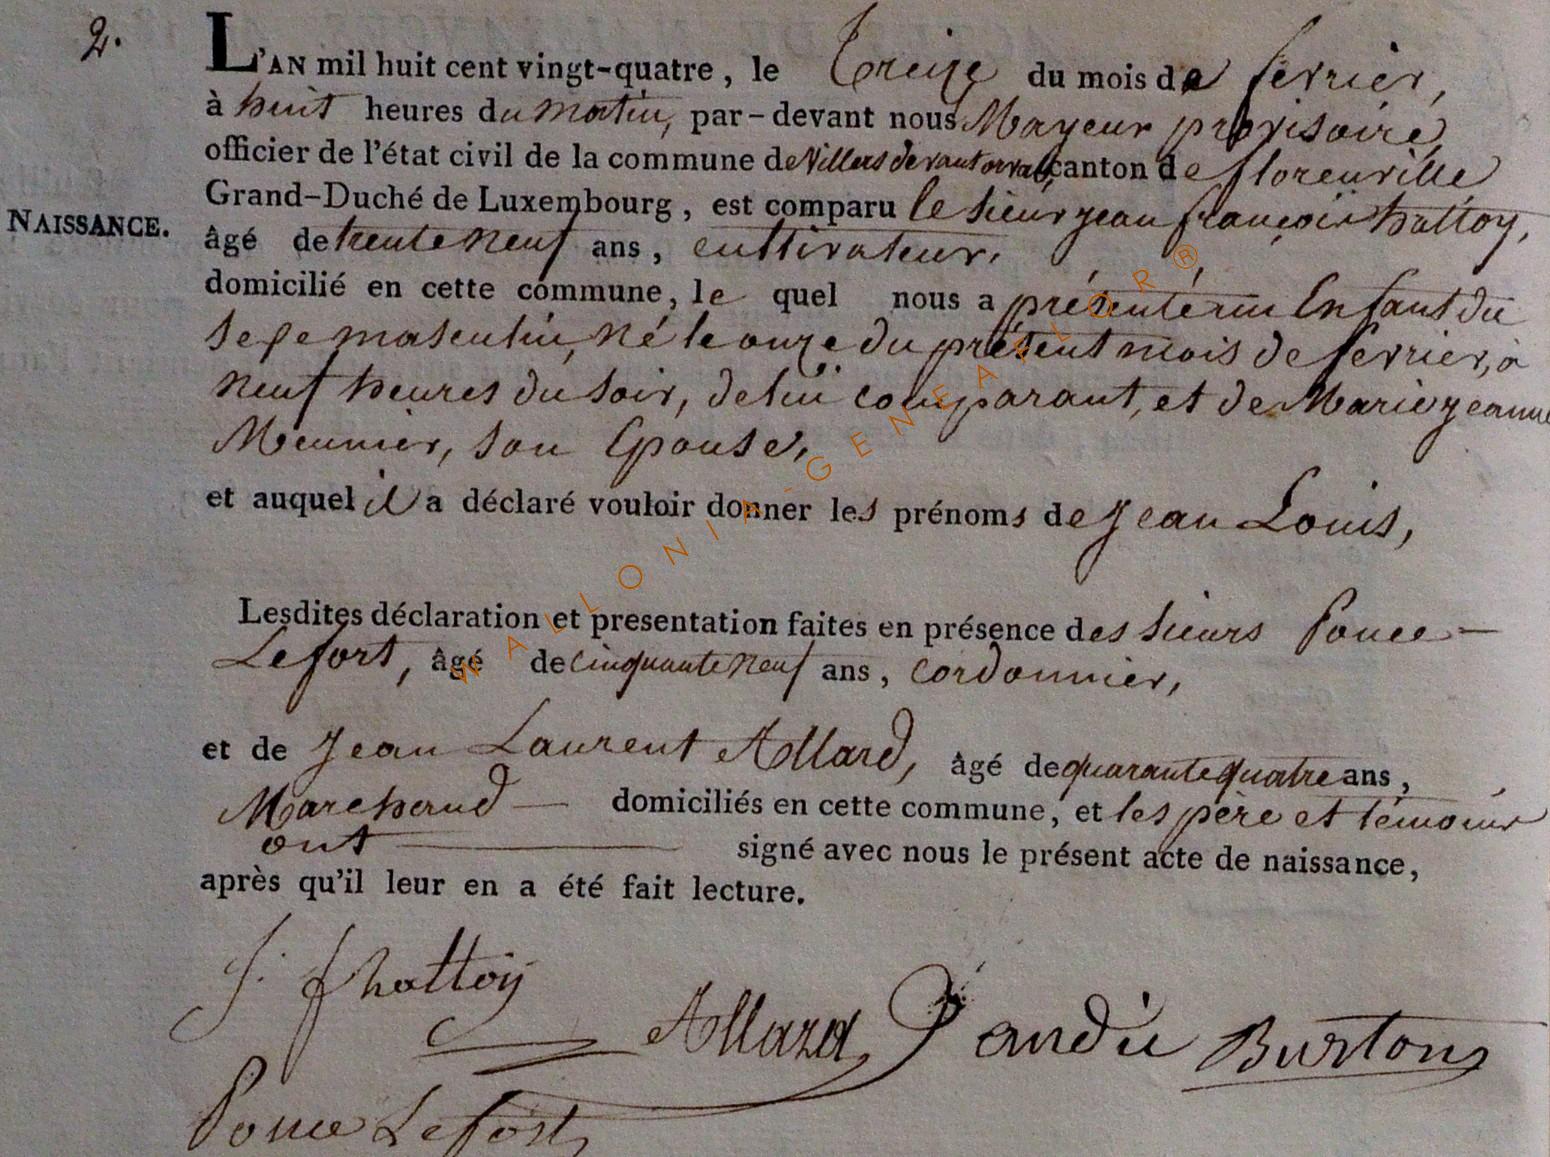 2.
L'AN mil huit cent vingt-quatre, le Treize du mois de fevrier,
à huit heures du matin, par-devant nous Mayeur provisoire,
officier de l'état civil de la commune de Villers devant orval, canton de florenville
Grand-Duché de Luxembourg, est comparu le sieur jean françois hattoy,
NAISSANCE.
âgé de trente neuf ans, cultivateur,
domicilié en cette commune, le quel nous a présenté un Enfant du
sexe masculin, né le onze du présent mois de fevrier, à
neuf heures du soir, de lui comparant, et de Marie jeanne
Meunier, son Epouse,
et auquel il a déclaré vouloir donner les prénoms de Jean Louis,
Lesdites déclaration et presentation faites en présence des sieurs Ponce
Lefort, âgé de cinquante neuf ans, cordonnier,
et de Jean Laurent Allard, âgé de quarante quatre ans,
Marchand domiciliés en cette commune, et les père et témoins
ont signé avec nous le présent acte de naissance,
après qu'il leur en a été fait lecture.
J. f hattoy
Allard Burton
Ponce Lefort
WALLONIA-GENEALOR®